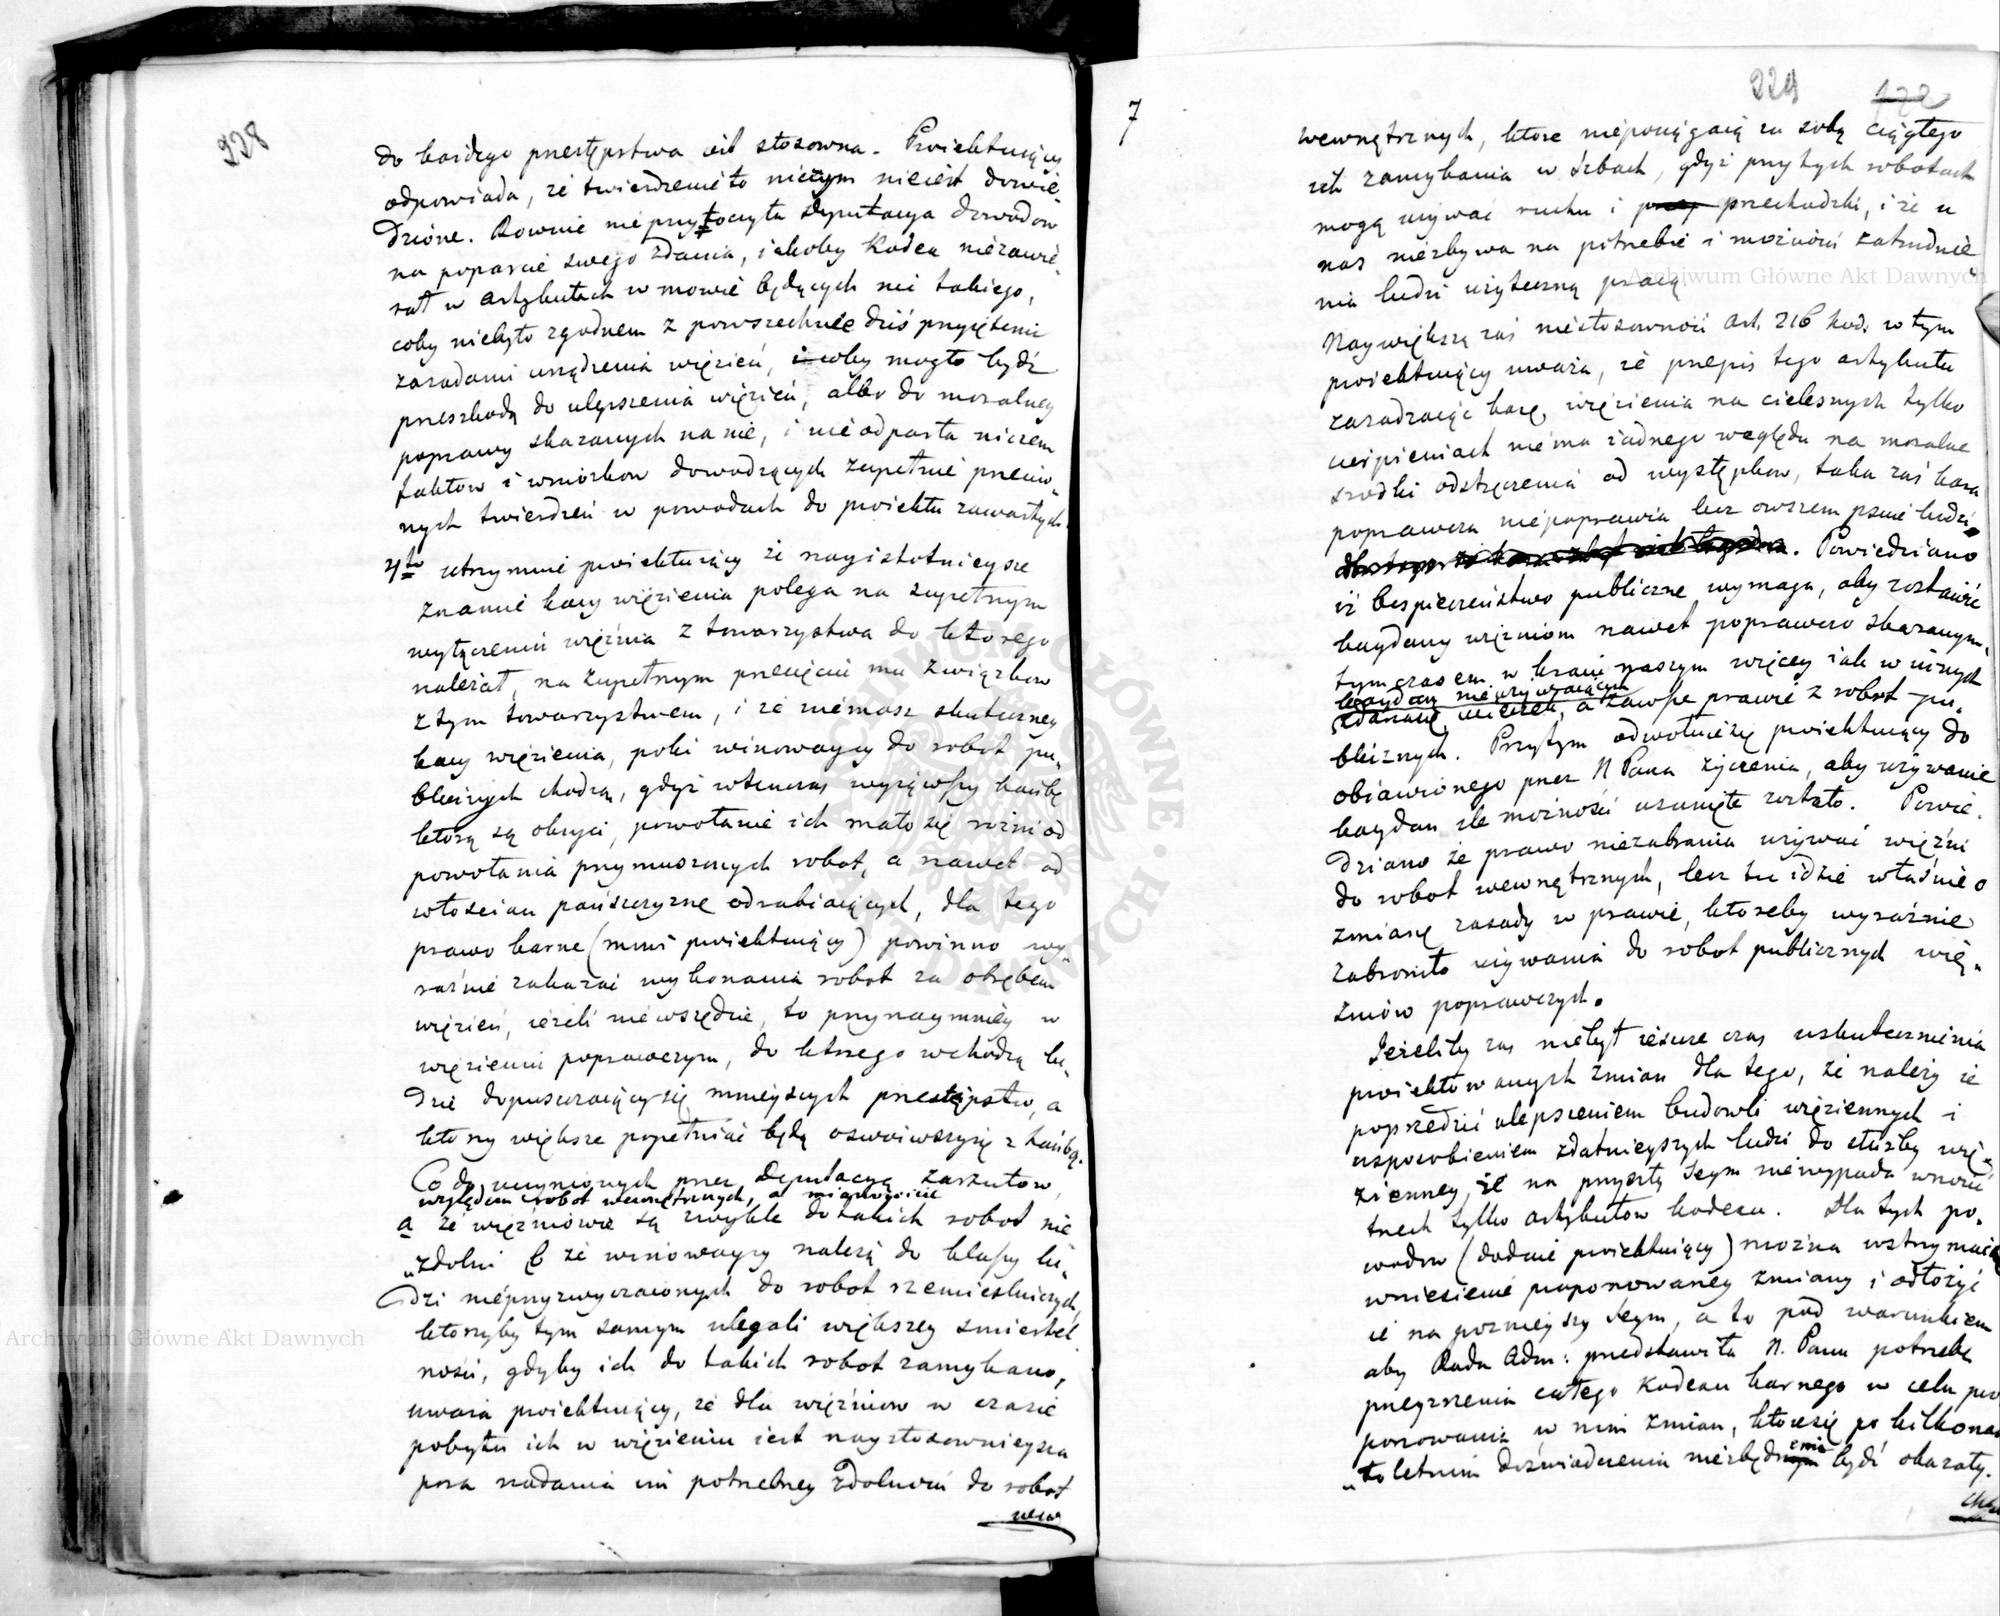 228
do każdego przestępstwa iest stosowna. Proiektuiący
odpowiada, że twierdzenie to niczym nieiest dowie„
dzione. Rownie nieprzytoczyła deputacya dowodow
na poparcie swego zdania, iakoby Kodex niezawie„
rał w artykułach w mowie będących nic takiego,
coby niebyło zgodnem z powszechnie dziś przyiętemi
zasadami urządzenia więzień, i coby mogło bydź
przeszkodą do ulepszenia więzień, albo do moralney
poprawy skazanych na nie, i nie odparła niczem
faktow i wniosków dowodzących zupełnie przeciw„
nych twierdzeń w powodach do proiektu zawartych.
4to utrzymuie proiektuiący że nayistotnieysze
znamie kary więzienia polega na zupełnym
wyłączeniu więźnia z towarzystwa do ktorego
należał, na zupełnym przecięciu mu związkow
z tym towarzystwem, i że niemasz skuteczney
kary więzienia, poki winowaycy do robot pu„
blicznych chodzą, gdyż wtenczas wyiąwszy hańbę
ktorą są okryci, powołanie ich mało się rożni od
powołania przymuszonych robot, a nawet od
włościan pańszczyznę odrabiaiących, dla tego
prawo karne (mowi proiektuiący) powinno wy„
raźnie zakazać wykonania robot za obrębem
więzień, ieżeli nie wszędzie, to przynaymniey w
więzieniu poprawczym, do ktorego wchodzą lu„
dzie dopuszczaiący się mnieyszych przestępstw, a
ktorzy większe popełniać będą oswoiwszy się z hańbą.
Co do uczynionych przez Deputacyą zarzutow,
względem robot wewnętrznych, a mianowicie
a że więźniowie są zwykle do takich robot nie
„zdolni b że winowaycy należą do klassy lu„
dzi nieprzyzwyczaionych do robot rzemieślniczych,
ktorzyby tym samym ulegali większey śmiertel
ności, gdyby ich do takich robot zamykano,
uważa proiektuiący, że dla więźniow w czasie
pobytu ich w więzieniu iest naystosownieysza
pora nadania im potrzebney zdolności do robot
wew
7
229 172
wewnętrznych, ktore niepociągaią za sobą ciągłego
ich zamykania w izbach, gdyż przy tych robotach
mogą używać ruchu i przez przechadzki, i że u
nas niezbywa na potrzebie i możności zatrudnie„
nia ludzi użyteczną pracą
Naywiększą zaś niestosowność art. 216 kod. w tym
proiektuiący uważa, że przepis tego artykułu
zasadzaiąc karę więzienia na cielesnych tylko
cierpieniach niema żadnego względu na moralne
srodki odstręczenia od występkow, taka zaś kara
poprawcza niepoprawia lecz owszem psuie ludzi
. Powiedziano
iż bezpieczeństwo publiczne wymaga, aby zostawić
kaydany więźniom nawet poprawczo skazanym„
tymczasem w kraiu naszym więcey iak w innych
kaydan nieużywaiących
zdarzaię ucieczek, a zawsze prawie z robot pu„
blicznych. Przytym odwołuie się proiektuiący do
obiawionego przez N Pana życzenia, aby używanie
kaydan ile możności usunięte zostało. Powie„
dziano że prawo niezabrania używać więźni
do robot wewnętrznych, lecz tu idzie właśnie o
zmianę zasady w prawie, ktoreby wyraźnie
zabroniło używania do robot publicznych wię„
źniów poprawczych.
Jeżeliby zas niebył ieszcze czas uskutecznienia
proiektowanych zmian dla tego, że należy ie
poprzedzić ulepszeniem budowli więziennych i
usposobieniem zdatnieyszych ludzi do służby wię„
zienney, że na przyszły Seym niewypada wnosić
trzech tylko artykułow kodexu. Dla tych po„
wodow (dodaie proiektuiący) można wstrzymać
wniesienie proponowaney zmiany i odłożyć
ie na poznieyszy Seym, a to pod warunkiem
aby Rada Adm: przedstawiła N. Panu potrzebę
przeyrzenia całego Kodexu karnego w celu pro„
ponowania w nim zmian, ktore się po kilkona„
„to letnim doświadczeniu niezbędnymi emi bydź okazały.